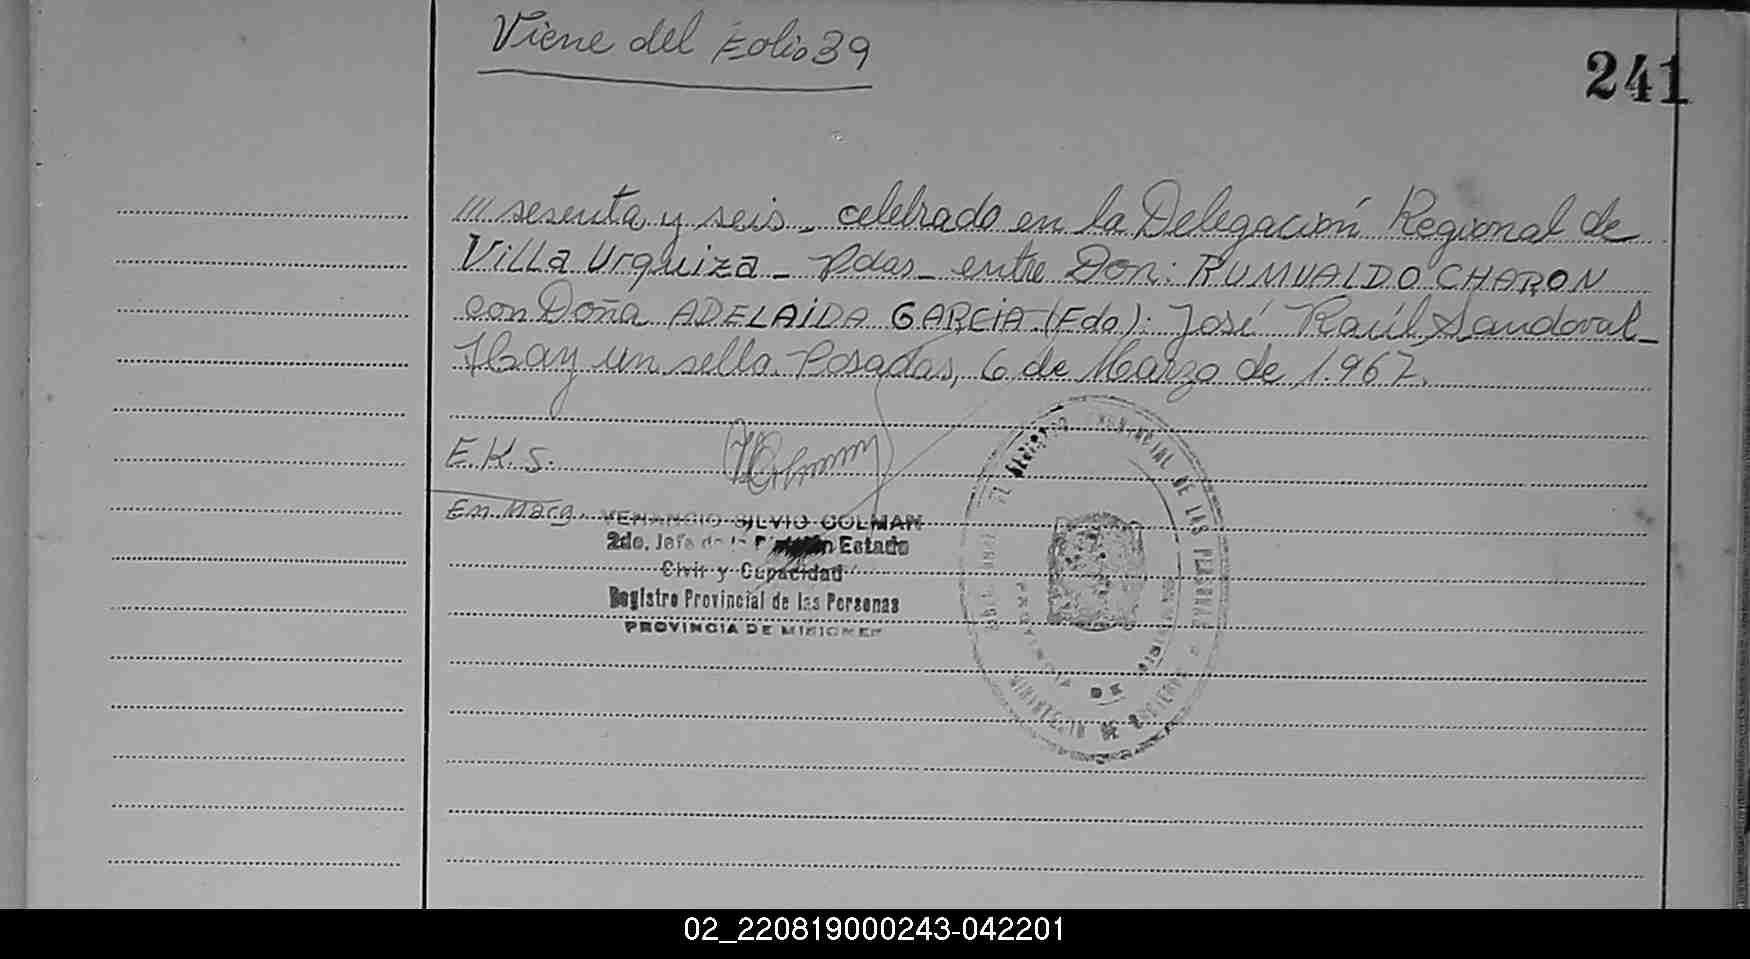 Viene del Folio 39
241
/// sesenta y seis - celebrado en la Delegación Regional de
Villa Urquiza - Pdas - entre Don: RUMUALDO CHARON
con Doña ADELAIDA GARCIA - (Fdo): José Raúl Sandoval -
Hay un sello. Posadas, 6 de Marzo de 1.967.
E.K.S.
En Marg.
VENANCIO SILVIO COLMAN
2do. Jefe de la Estado
Civil y Capacidad
Registro Provincial de las Personas
PROVINCIA DE MISIONES
PROVINCIAL DE LAS PERSONAS
PROVINCIA DE MISIONES
02_220819000243-042201